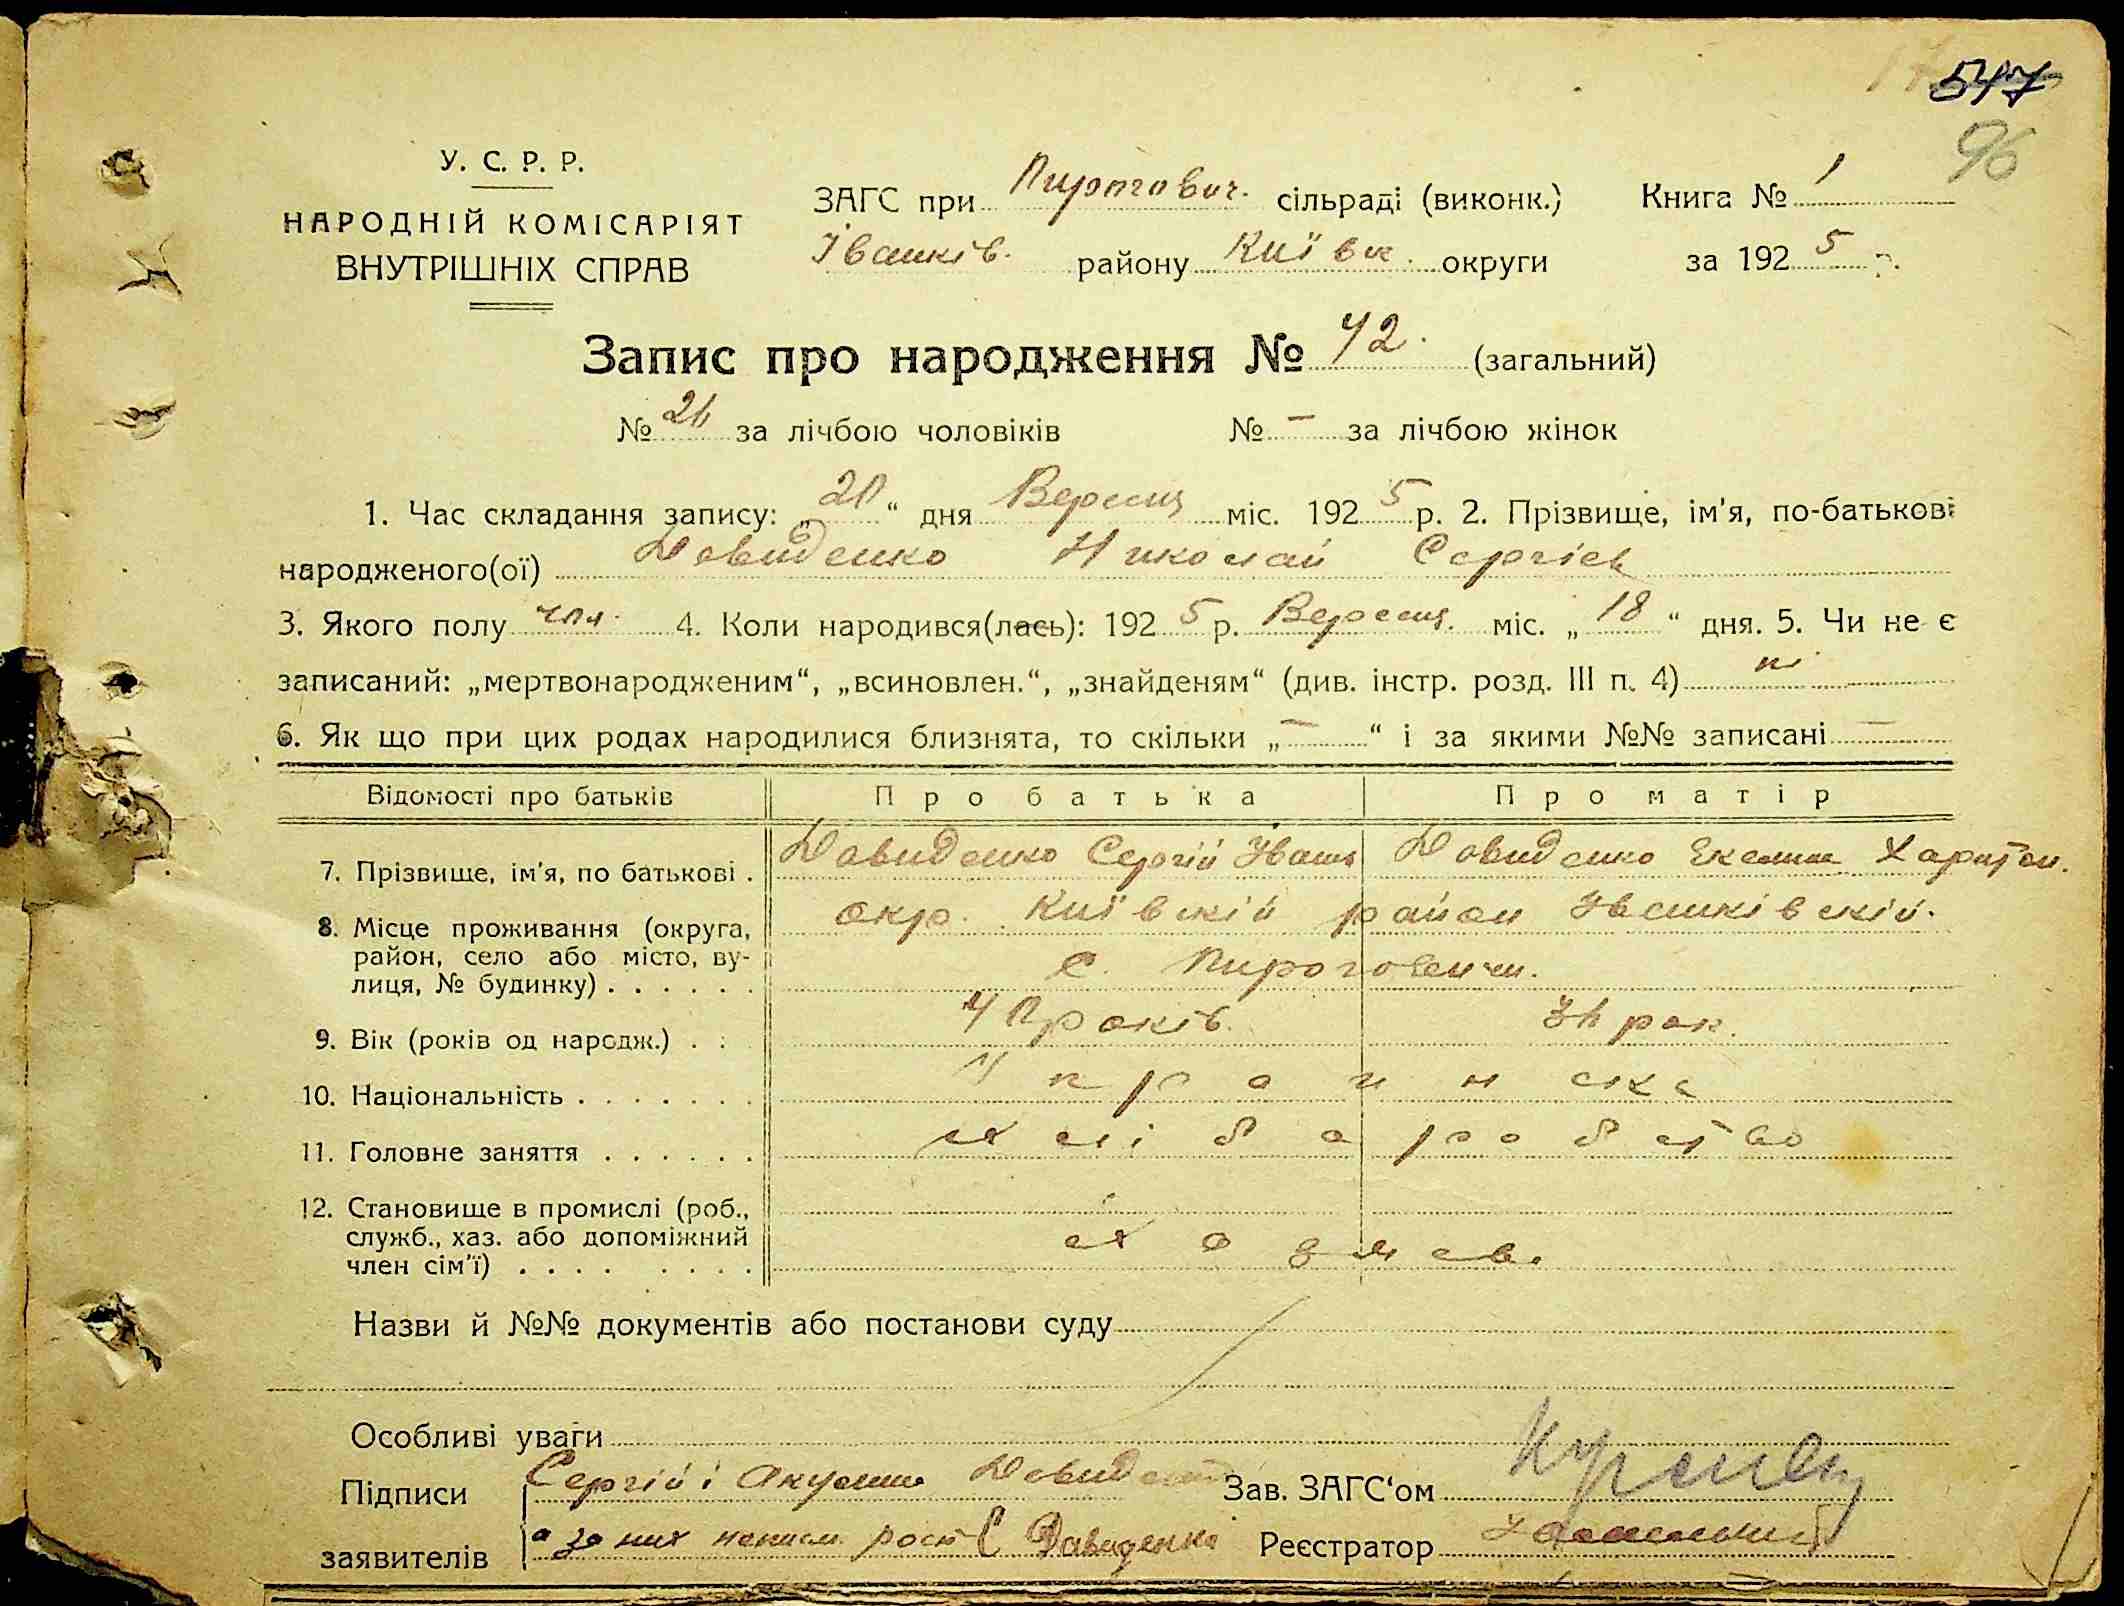 547
96
У. С. Р. Р.
НАРОДНІЙ КОМІСАРІЯТ
ВНУТРІШНІХ СПРАВ
ЗАГС при Пиротович. сільраді (виконк.) Книга № 1
Іванків. району Київськ. округи за 1925 р.
Запис про народження № 42. (загальний)
№ за лічбою чоловіків № — за лічбою жінок
1. Час складання запису: „20“ дня Вересня міс. 1925 р. 2. Прізвище, ім'я, по-батькові
народженого(ої) Давиденко Николай Сергіев
3. Якого полу чол. 4. Коли народився(лась): 1925 р. Вересня. міс. „18“ дня. 5. Чи не є
записаний: „мертвонародженим“, „всиновлен.“, „знайденям“ (див. інстр. розд. III п. 4) ні
6. Як що при цих родах народилися близнята, то скільки „—“ і за якими №№ записані —
Відомості про батьків Про батька Про матір
7. Прізвище, ім'я, по батькові . Давиденко Сергій Іван Давиденко Харитон.
8. Місце проживання (округа, окр. Київскій район Іванківскій.
район, село або місто, ву-
лиця, № будинку) . . . . . . с. Пироговичи.
9. Вік (років од народж.) . . 40 років. рок.
10. Національність . . . . . . . Украинска
11. Головне заняття . . . . . . хліборобство
12. Становище в промислі (роб.,
служб., хаз. або допоміжний
член сім'ї) . . . . . . . . хозяев.
Назви й №№ документів або постанови суду
Особливі уваги
Підписи Сергій і Акулина Давиденко Зав. ЗАГС‘ом
заявителів а за них неписм. росп С Давиденко Реєстратор